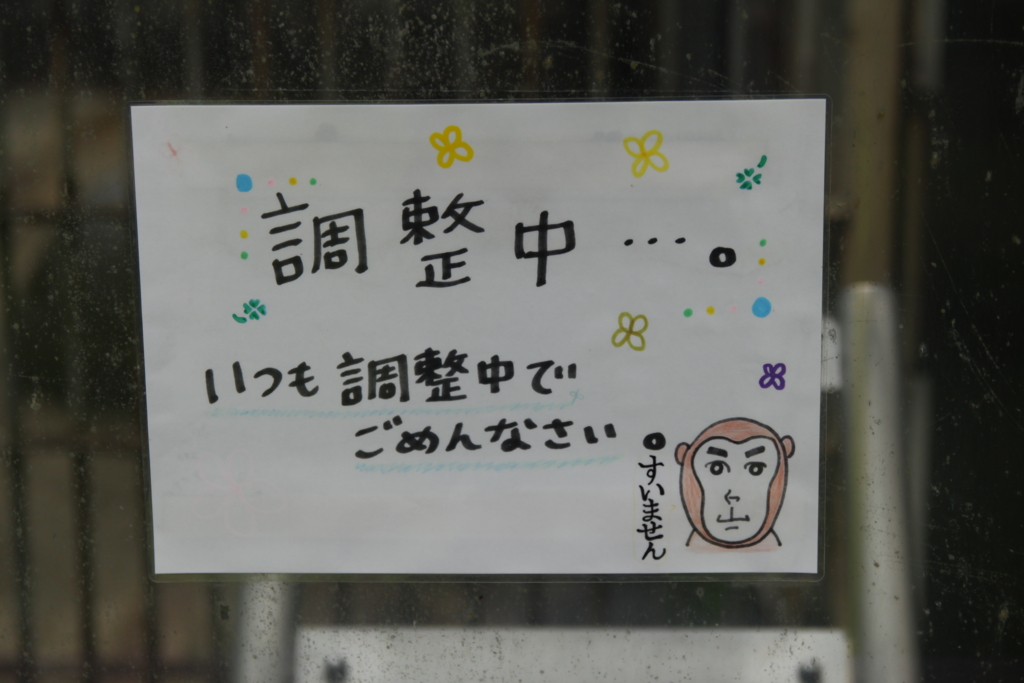 調整中…。
いつも調整中で
ごめんなさい。
すいません